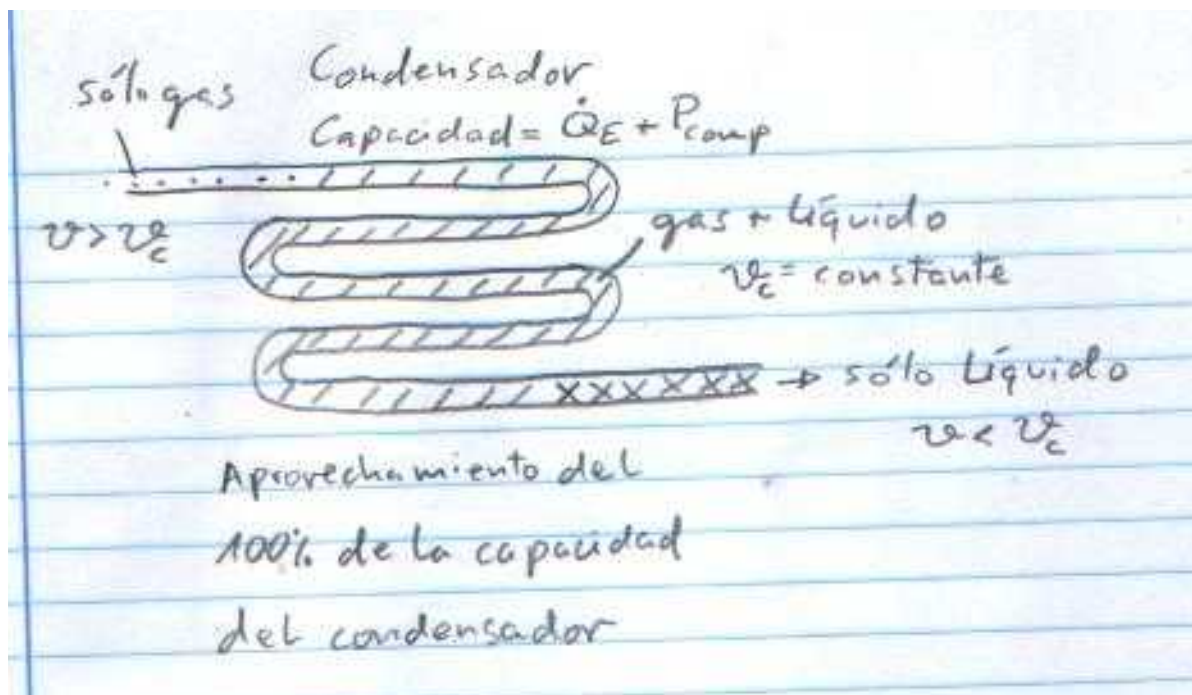 sólo gas
Condensador
Capacidad = Q̇E + Pcomp
ϑ > ϑc
gas + Líquido
ϑc = constante
→ sólo Líquido
ϑ < ϑc
Aprovechamiento del
100% de la capacidad
del condensador